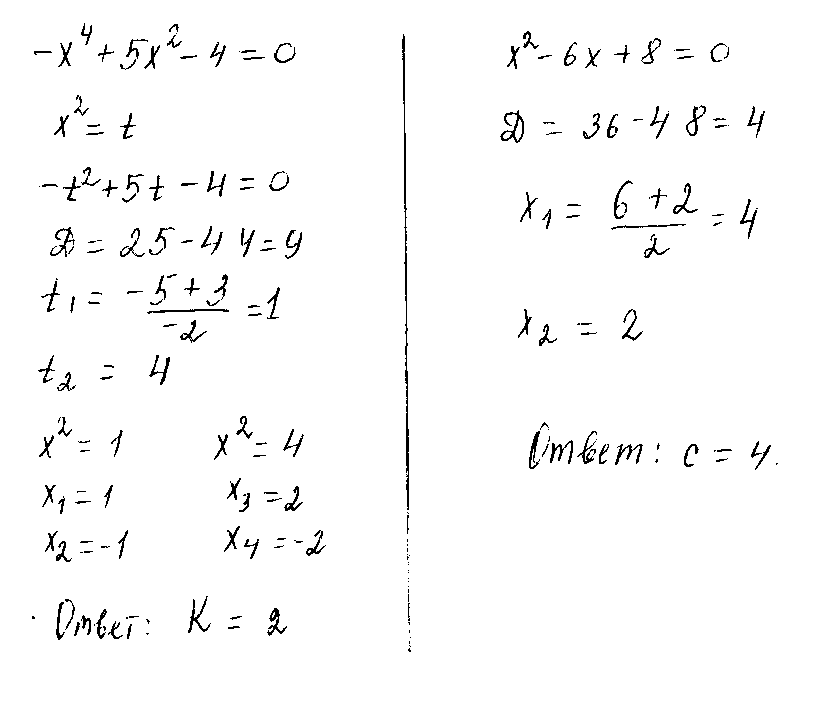 -x⁴+5x²-4=0
x²=t
-t²+5t-4=0
D=25-4 4=9
t₁= (-5+3)/(-2) =1
t₂ = 4
x²=1 x²=4
x₁=1 x₃=2
x₂=-1 x₄=-2
Ответ: K = 2
x²-6x+8=0
D = 36-4 8=4
x₁= (6+2)/2 =4
x₂ = 2
Ответ: c = 4.